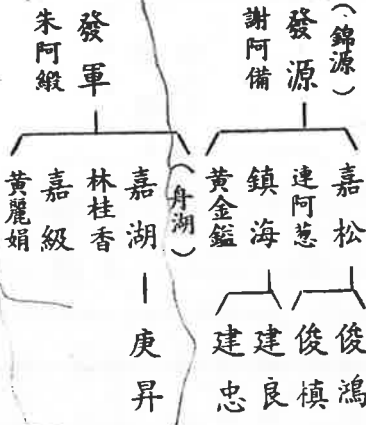 （錦源）
發源
謝阿備
發軍
朱阿緞
嘉松
連阿葱
鎮海
黃金鎰
（舟湖）
嘉湖
林桂香
嘉級
黃麗娟
俊鴻
俊槙
建良
建忠
庚昇